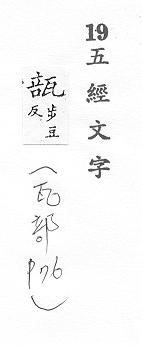 19五經文字
瓿步豆反
(瓦部
P76)